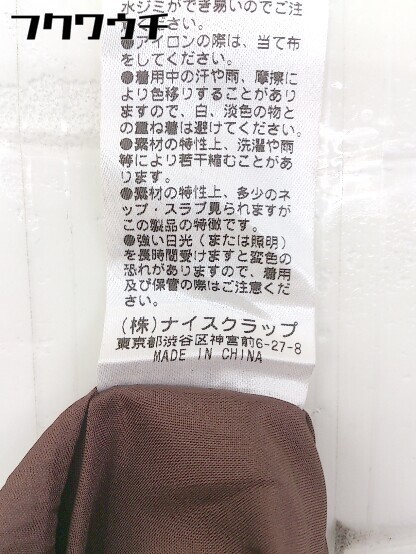 フクワウチ
水ジミができ易いのでご注
ださい。
●アイロンの際は、当て布
をしてください。
●着用中の汗や雨、摩擦に
より色移りすることがあり
ますので、白、淡色の物と
の重ね着は避けてください。
●素材の特性上、洗濯や雨
等により若干縮むことがあ
ります。
●素材の特性上、多少のネ
ップ・スラブ見られますが
この製品の特徴です。
●強い日光(または照明)
を長時間受けますと変色の
恐れがありますので、着用
及び保管の際はご注意くだ
さい。
(株)ナイスクラップ
東京都渋谷区神宮前6-27-8
MADE IN CHINA